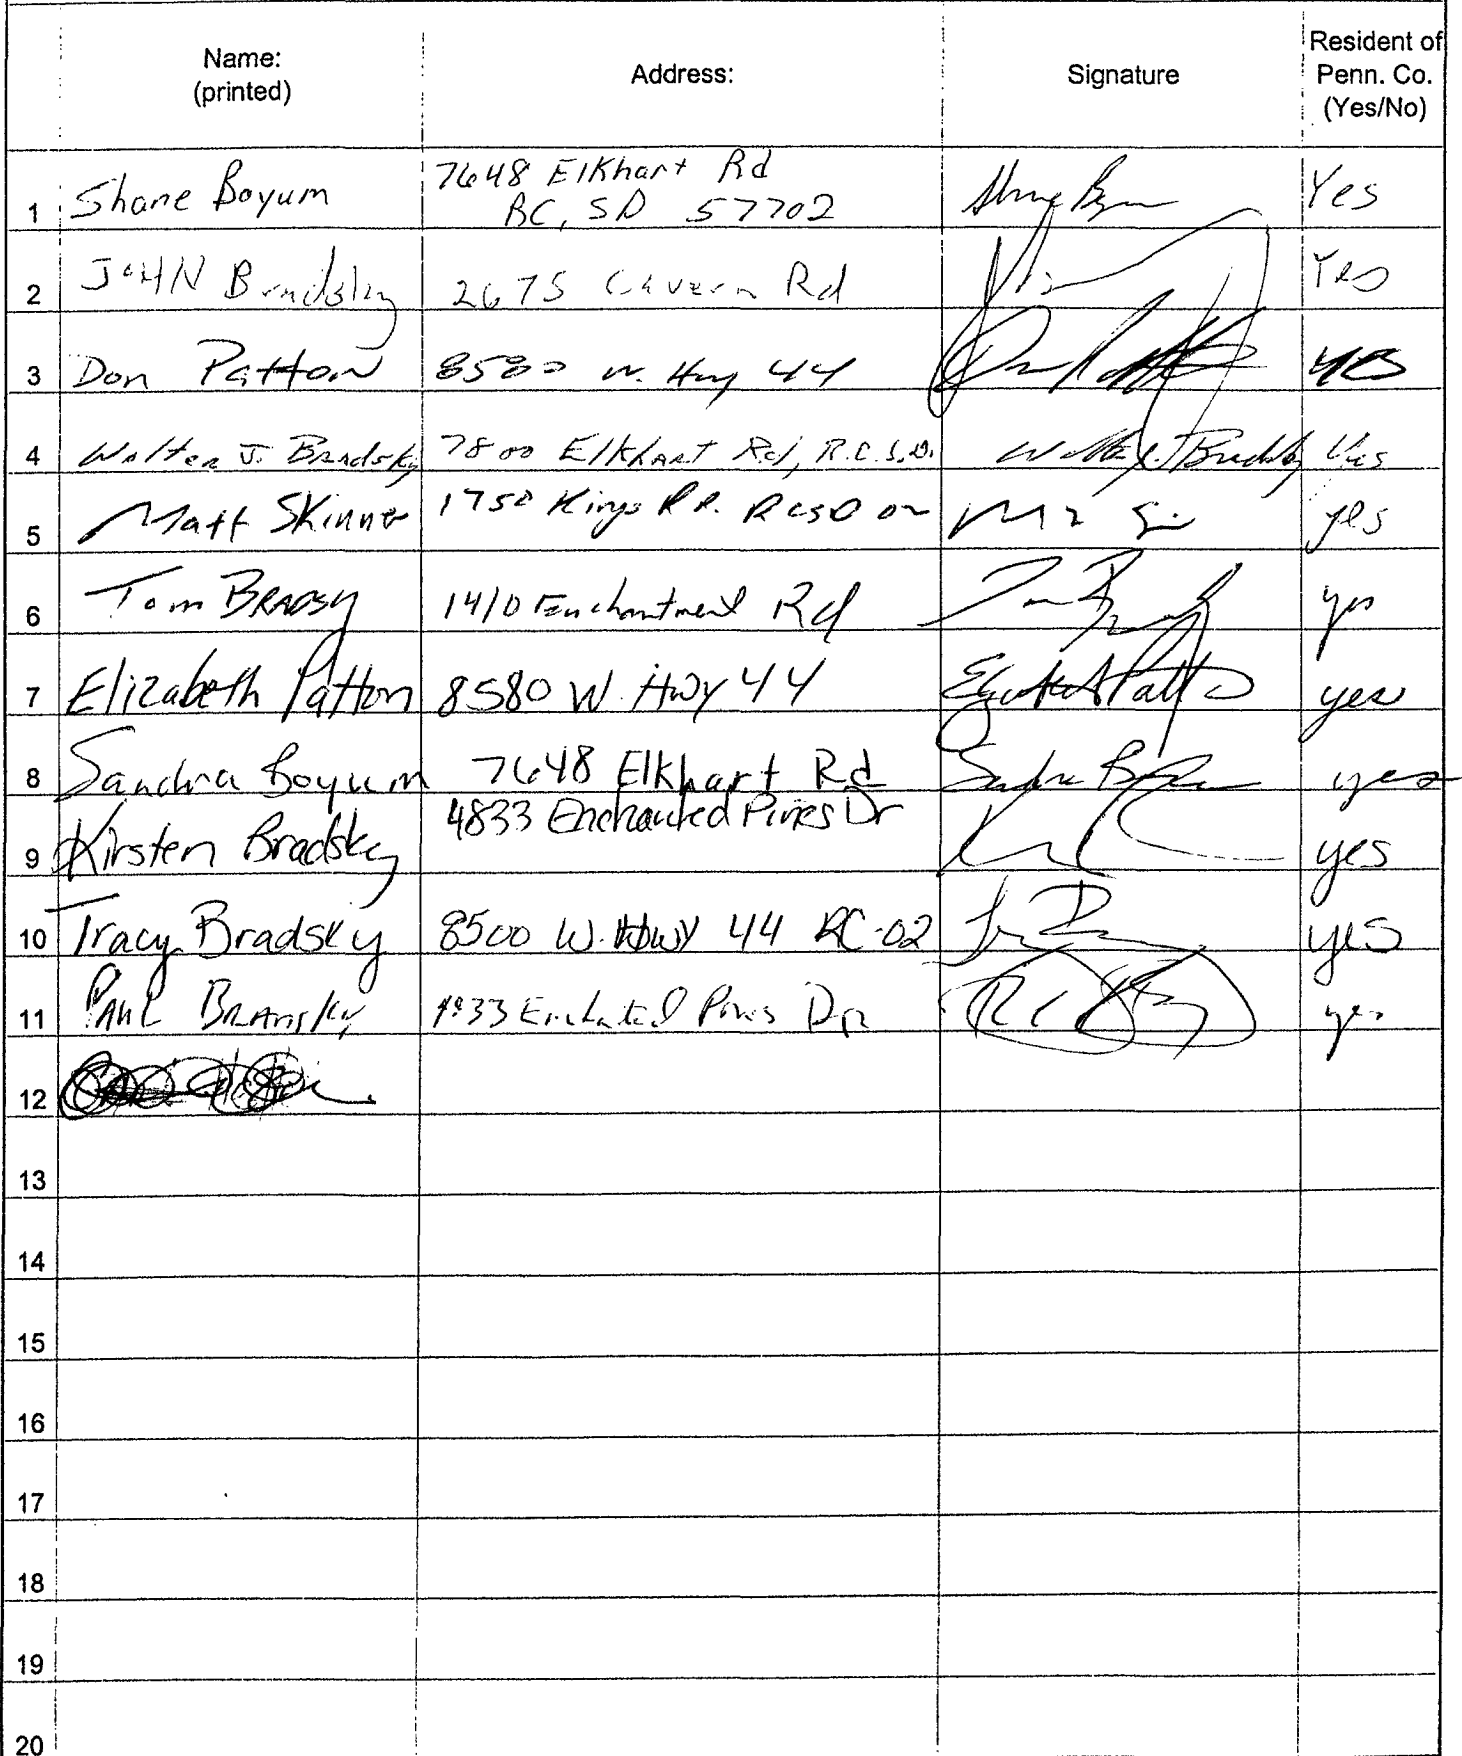 Name:
(printed)
Address:
Signature
Resident of
Penn. Co.
(Yes/No)
7648 Elkhart Rd
1 Shane Boyum RC, SD 57702 Yes
2 JOHN Bradsky 2675 Cavern Rd Yes
3 Don Patton 8580 W. Hwy 44 yes
4 Walter J. Bradsky 7800 Elkhart Rd, R.C. S.D. Yes
5 Matt Skinner 1750 Kings RD. RCSD yes
6 Tom BRADSKY 1410 Enchantment Rd yes
7 Elizabeth Patton 8580 W. Hwy 44 yes
8 Sandra Boyum 7648 Elkhart Rd yes
4833 Enchanted Pines Dr
9 Kirsten Bradsky yes
10 Tracy Bradsky 8500 W. Hwy 44 RC-02 yes
11 PAUL BRADSKY 4833 Enchanted Pines Dr yes
12
13
14
15
16
17
18
19
20